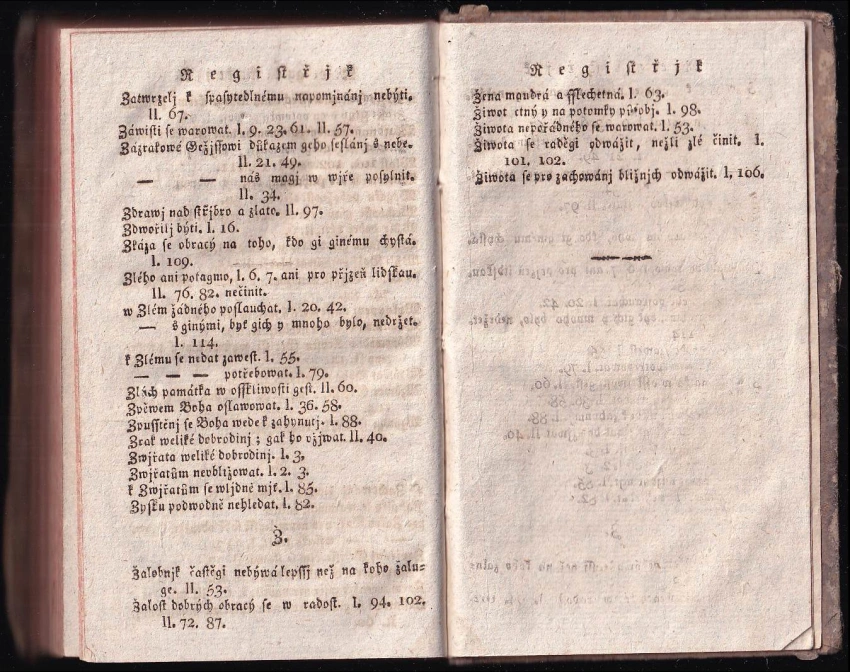 Regiſtřjk
Zatwrzelj k ſpaſytedlnému napomjnánj nebýti.
II. 67.
Záwiſti ſe warowat. I. 9. 23. 61. II. 57.
Zázrakowé Gežjſſowi důkazem geho ſeſlánj s nebe.
II. 21. 49.
— — nás magj w wjře poſylnit.
II. 34.
Zdrawj nad ſtřjbro a zlato. II. 97.
Zdwořilj býti. I. 16.
Zkáza ſe obracý na toho, kdo gi ginému chyſtá.
I. 109.
Zlého ani potagmo, I. 6. 7. ani pro přjzeň lidſkau.
II. 76. 82. nečinit.
w Zlém žádného poſlauchat. I. 20. 42.
— s ginými, byť gich y mnoho bylo, nedržet.
I. 114.
k Zlému ſe nedat zaweſt. I. 55.
— — — potřebowat. I. 79.
Zlých památka w oſſkliwoſti geſt. II. 60.
Zpěwem Boha oſlawowat. I. 36. 58.
Zpuſſtěnj ſe Boha wede k zahynutj. I. 88.
Zrak weliké dobrodinj; gak ho vžjwat. II. 40.
Zwjřata weliké dobrodinj. I. 3.
Zwjřatům neubližowat. I. 2. 3.
k Zwjřatům ſe wljdně mjt. I. 85.
Zyſku podwodně nehledat. I. 82.
Ž.
Žalobnjk čaſtěgi nebýwá lepſſj než na koho žalu-
ge. II. 53.
Žaloſt dobrých obracý ſe w radoſt. I. 94. 102.
II. 72. 87.
Regiſtřjk
Žena maudrá a ſſlechetná. I. 63.
Žiwot ctný y na potomky půſobj. I. 98.
Žiwota nepořádného ſe warowat. I. 53.
Žiwota ſe raděgi odwážit, nežli zlé činit. I.
101. 102.
Žiwota ſe pro zachowánj bližnjch odwážit. I. 106.